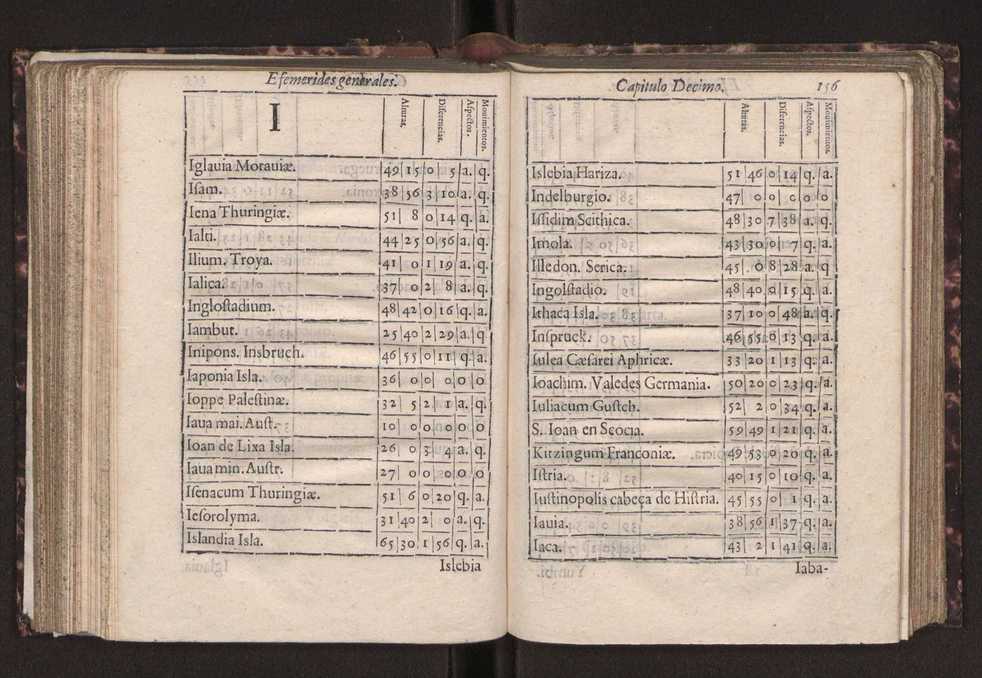 Efemerides generales.
I
Alturas.
Diferencias.
Aspectos.
Mouimientos.
Iglauia Morauiæ. 49 15 0 5 a. q.
Isam. 38 56 3 10 a. q.
Iena Thuringiæ. 51 8 0 14 q. a.
Ialti. 44 25 0 56 a. q.
Ilium. Troya. 41 0 1 19 a. q.
Ialica. 37 0 2 8 a. q.
Inglostadium. 48 42 0 16 q. a.
Iambut. 25 40 2 29 a. q.
Inipons. Insbruch. 46 55 0 11 q. a.
Iaponia Isla. 36 0 0 0 0 0
Ioppe Palestinæ. 32 5 2 1 a. q.
Iaua mai. Aust. 10 0 0 0 0 0
Ioan de Lixa Isla. 26 0 3 4 a. q.
Iaua min. Austr. 27 0 0 0 0 0
Isenacum Thuringiæ. 51 6 0 20 q. a.
Iesorolyma. 31 40 2 0 a. q.
Islandia Isla. 65 30 1 56 q. a.
Islebia
Capitulo Decimo. 156
Alturas.
Diferencias.
Aspectos.
Mouimientos.
Islebia Hariza. 51 46 0 14 q. a.
Indelburgio. 47 0 0 0 0 0
Issidim Scithica. 48 30 7 38 a. q.
Imola. 43 30 0 7 q. a.
Illedon. Serica. 45 0 8 28 a. q
Ingolstadio. 48 40 0 15 q. a.
Ithaca Isla. 37 10 0 48 a. q.
Inspruck. 46 55 0 13 q. a.
Iulea Cæsarei Aphricæ. 33 20 1 13 q. a.
Ioachim. Valedes Germania. 50 20 0 23 q. a.
Iuliacum Gustch. 52 2 0 34 q. a.
S. Ioan en Scocia. 59 49 1 21 q. a.
Kitzingum Franconiæ. 49 53 0 20 q. a.
Istria. 40 15 0 10 q. a.
Iustinopolis cabeça de Histria. 45 55 0 1 q. a.
Iauia. 38 56 1 37 q. a.
Iaca. 43 2 1 41 q. a.
Iaba-